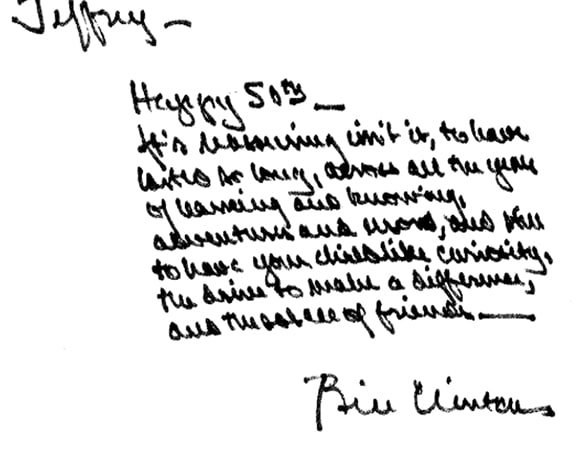 Jeffrey —
Happy 50th —
It's reassuring isn't it, to have
lasted as long, across all the years
of learning and knowing,
adventures and , and still
to have your childlike curiosity,
the drive to make a difference,
and the solace of friends —
Bill Clinton